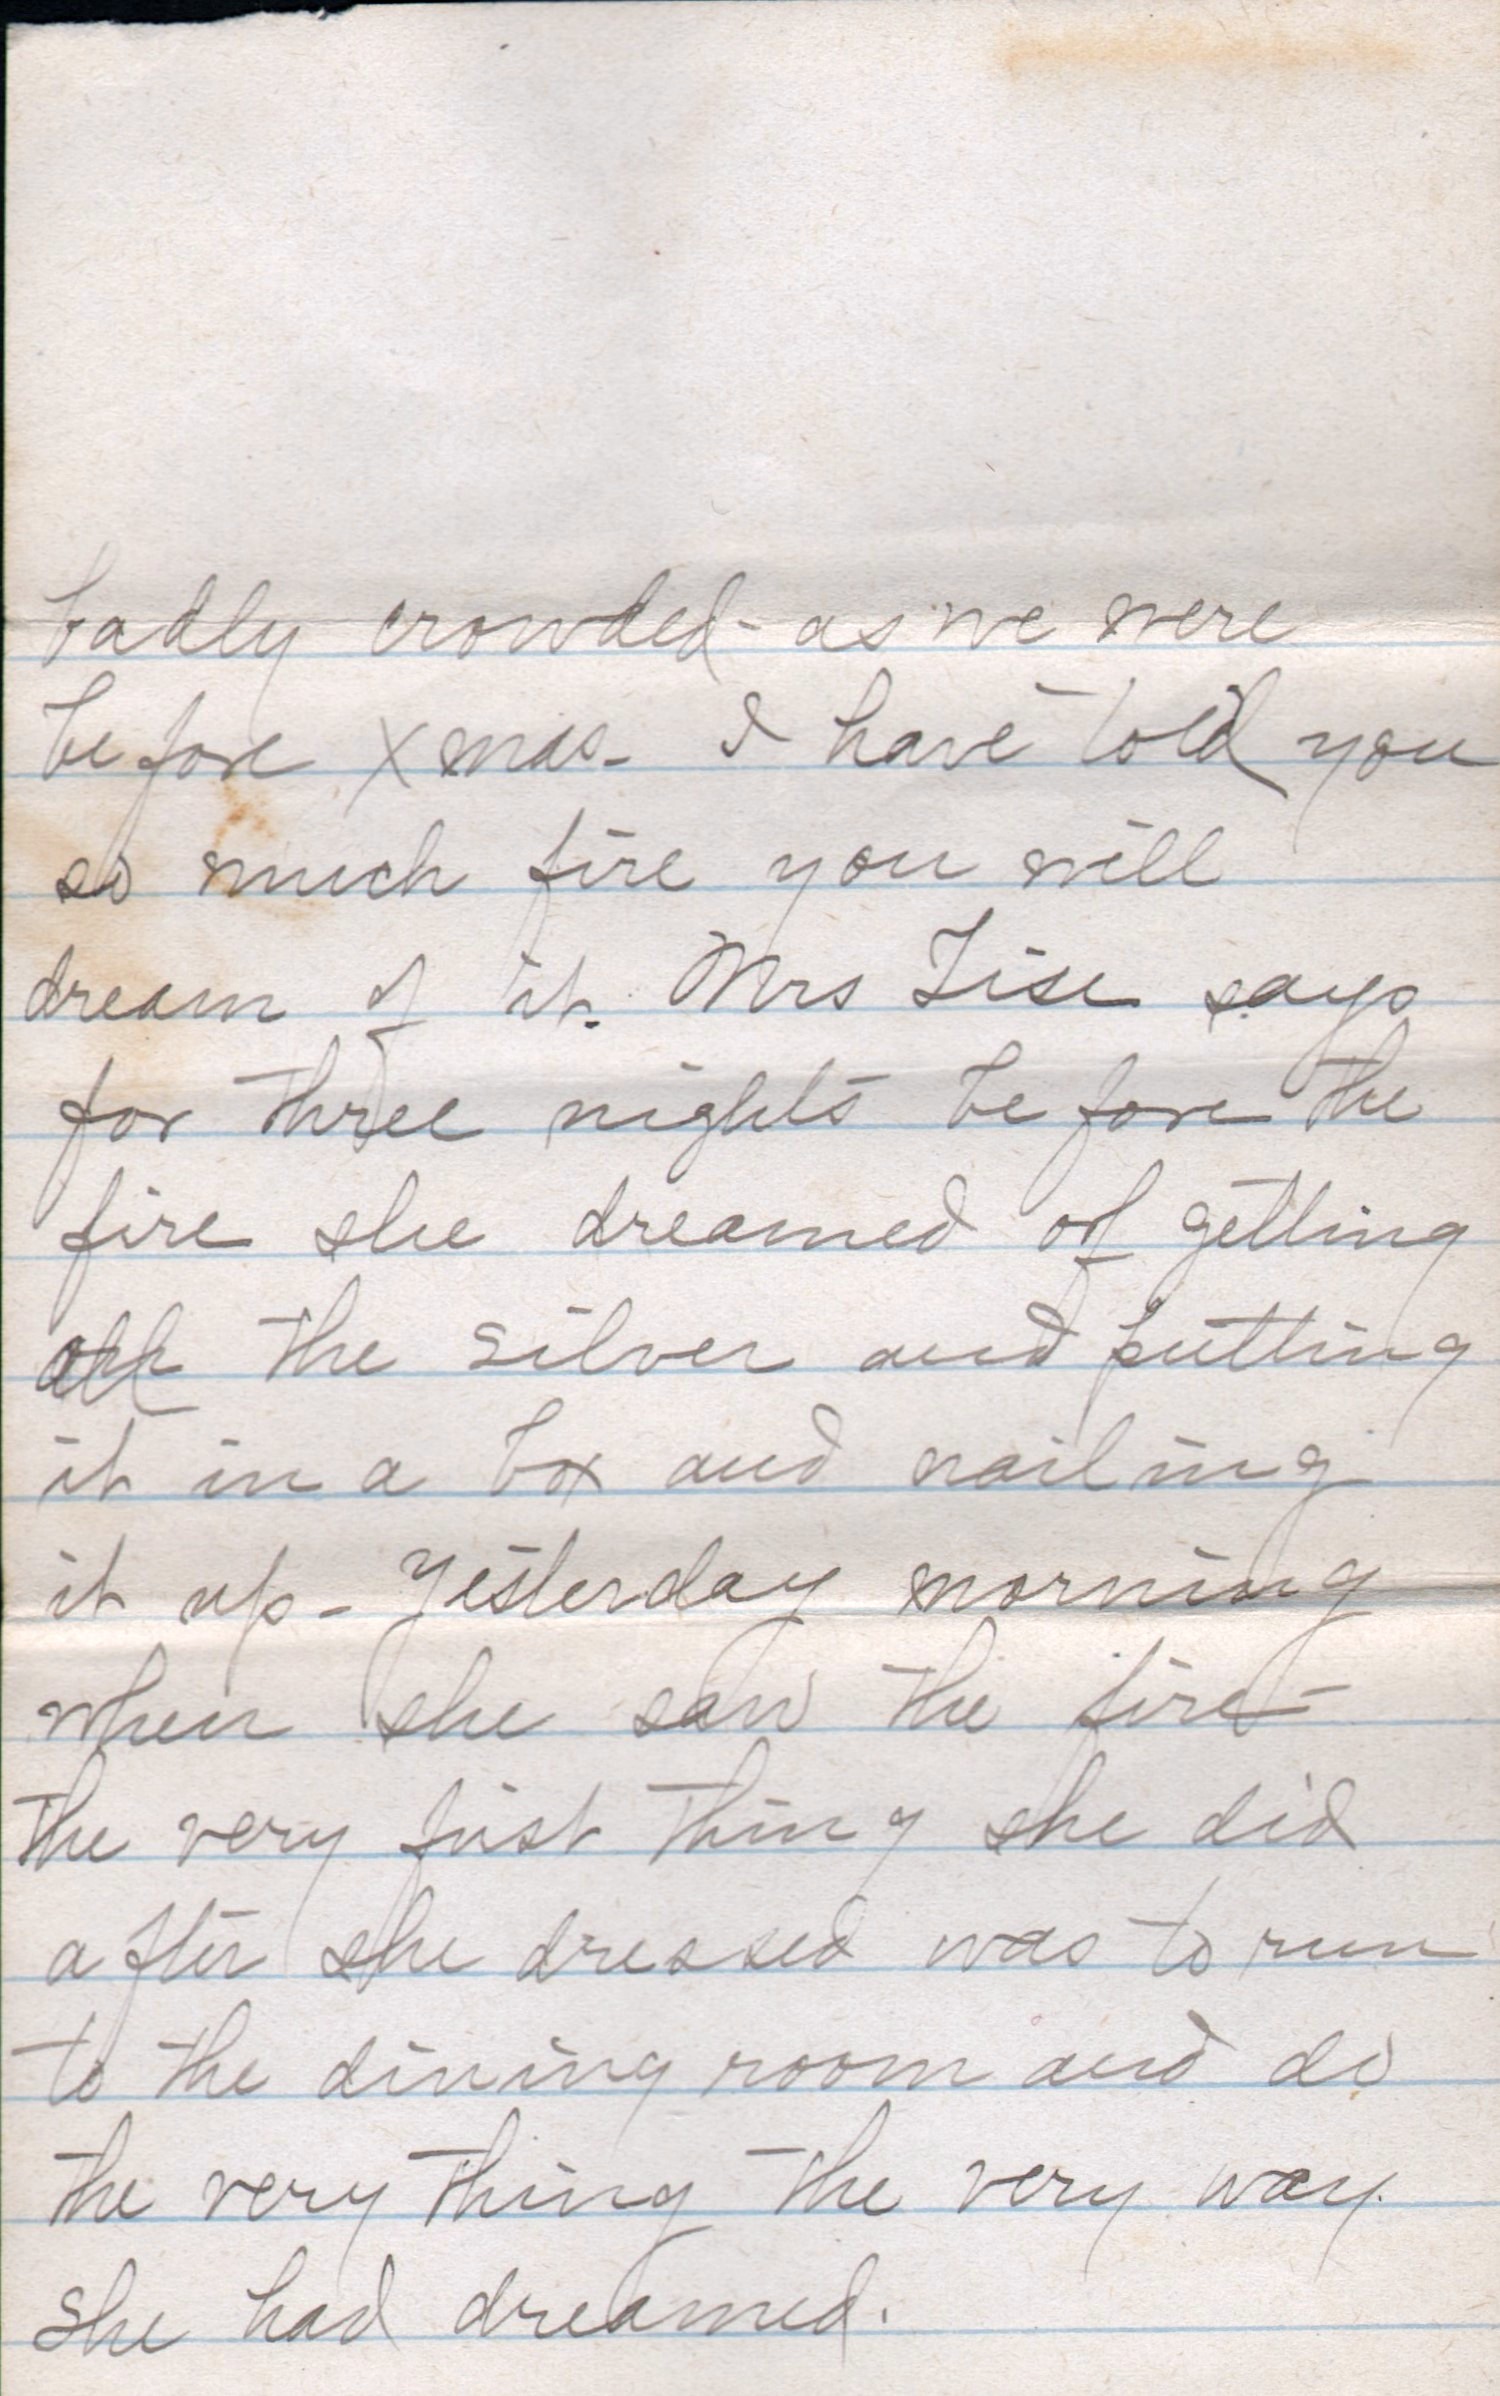 badly crowded - as we were
before Xmas - I have told you
so much fire you will
dream of it. Mrs Tise says
for three nights before the
fire she dreamed of getting
all the silver and putting
it in a box and nailing
it up - Yesterday morning
when she saw the fire -
the very first thing she did
after she dressed was to run
to the dining room and do
the very thing the very way
she had dreamed.